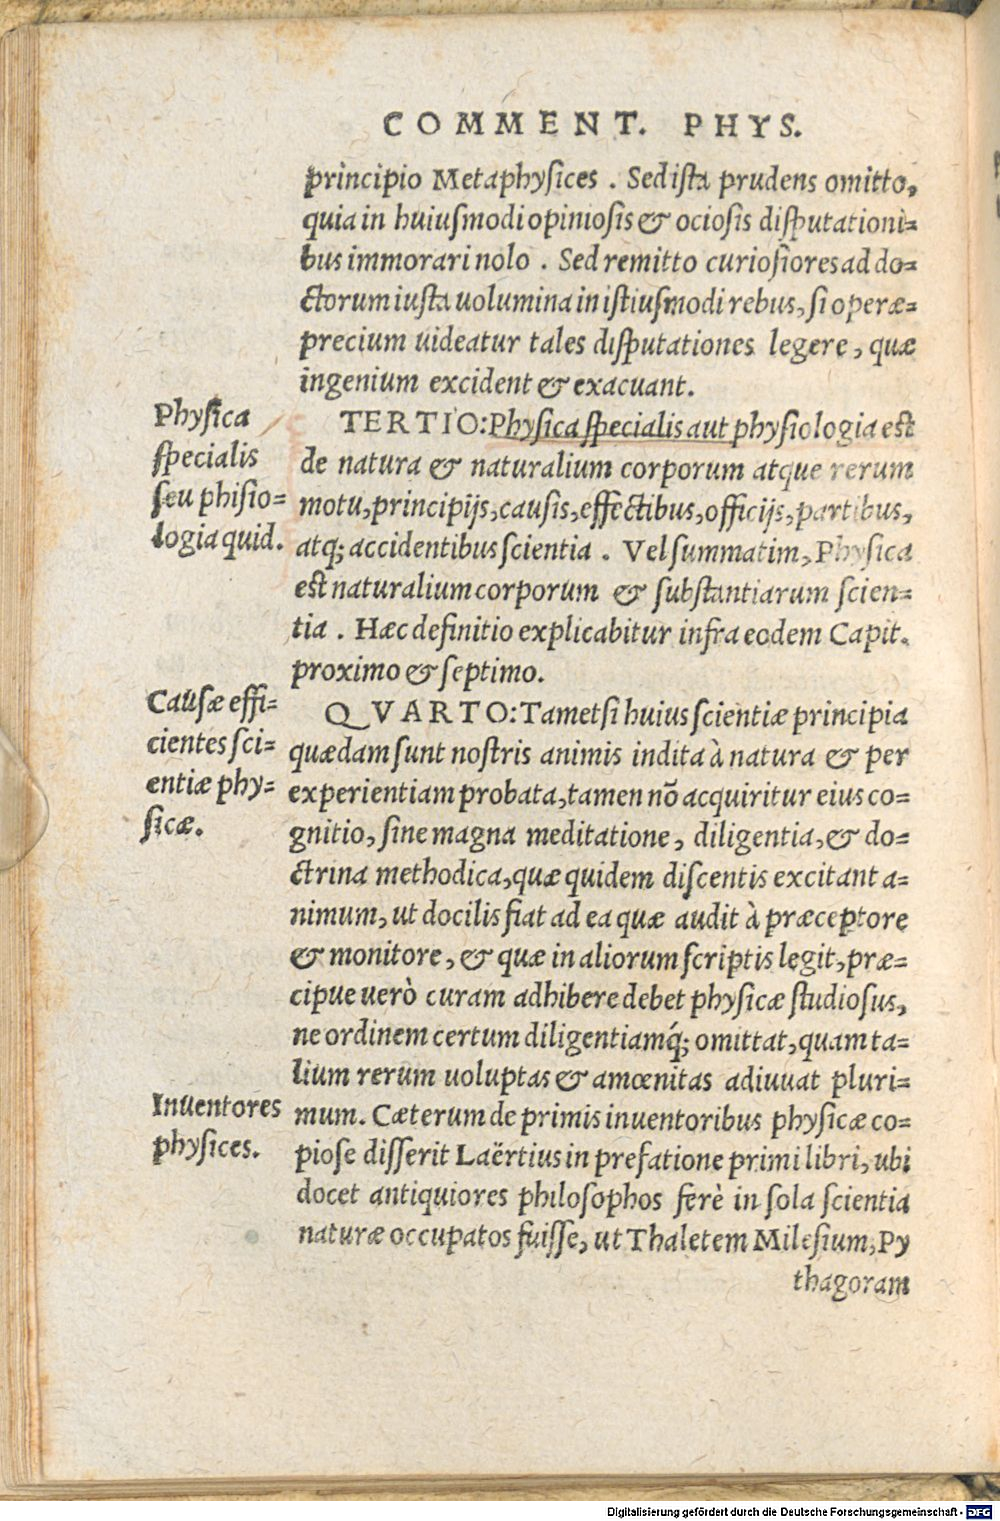 COMMENT. PHYS.
principio Metaphysices . Sed ista prudens omitto,
quia in huiusmodi opiniosis & ociosis disputationi=
bus immorari nolo . Sed remitto curiosiores ad do=
ctorum iusta uolumina in istiusmodi rebus, si operæ=
precium uideatur tales disputationes legere, quæ
ingenium excident & exacuant.
Physica
specialis
seu phisio=
logia quid.
TERTIO: Physica specialis aut physiologia est
de natura & naturalium corporum atque rerum
motu, principijs, causis, effectibus, officijs, partibus,
atq; accidentibus scientia . Vel summatim, Physica
est naturalium corporum & substantiarum scien=
tia . Hæc definitio explicabitur infra eodem Capit.
proximo & septimo.
Causæ effi=
cientes sci=
entiæ phy=
sicæ.
QVARTO: Tametsi huius scientiæ principia
quædam sunt nostris animis indita à natura & per
experientiam probata, tamen nõ acquiritur eius co=
gnitio, sine magna meditatione, diligentia, & do=
ctrina methodica, quæ quidem discentis excitant a=
nimum, ut docilis fiat ad ea quæ audit à præceptore
& monitore, & quæ in aliorum scriptis legit, præ=
cipue uerò curam adhibere debet physicæ studiosus,
ne ordinem certum diligentiamq́; omittat, quam ta=
lium rerum uoluptas & amœnitas adiuuat pluri=
Inuentores
physices.
mum. Cæterum de primis inuentoribus physicæ co=
piose disserit Laërtius in prefatione primi libri, ubi
docet antiquiores philosophos ferè in sola scientia
naturæ occupatos fuisse, ut Thaletem Milesium, Py
thagoram
Digitalisierung gefördert durch die Deutsche Forschungsgemeinschaft - DFG